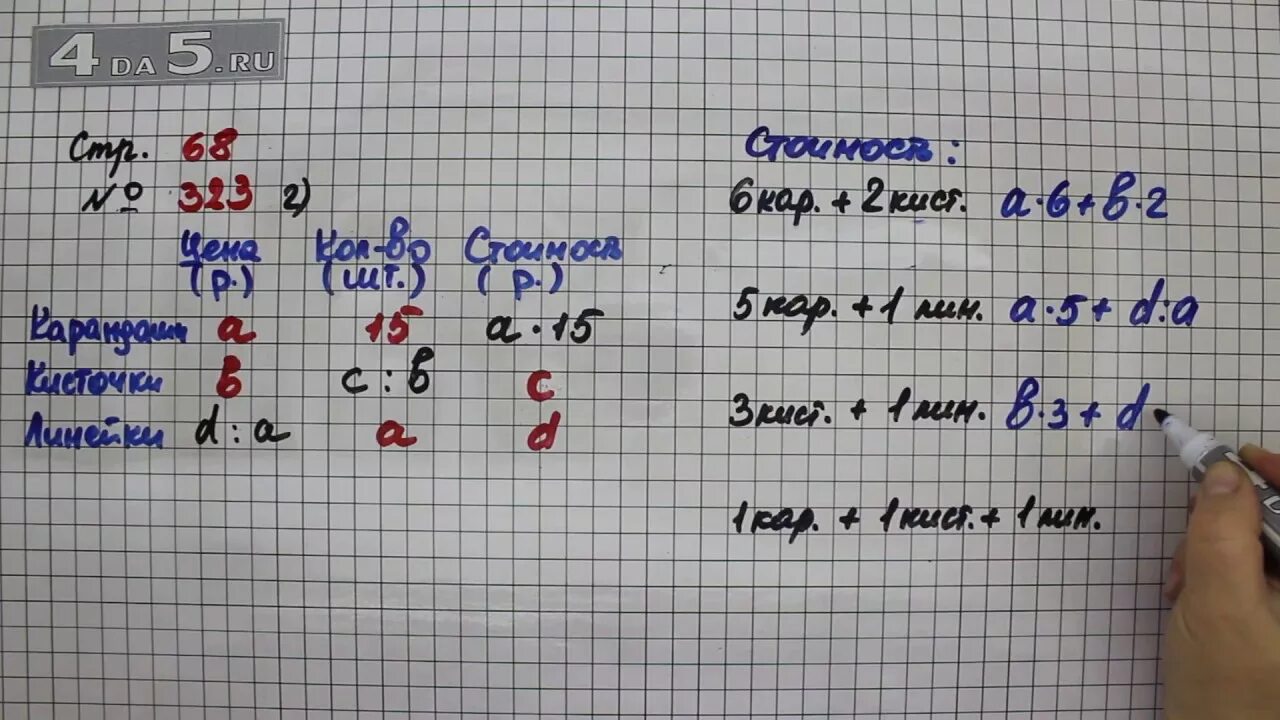 4DA5.RU
Стр. 68
№ 323 2)
Цена Кол-во Стоимость
(р.) (шт.) (р.)
Карандаши а 15 а · 15
Кисточки в с : в с
Линейки d : а а d
Стоимость:
6 кар. + 2 кист. а·6 + в·2
5 кар. + 1 лин. а·5 + d:а
3 кист. + 1 лин. в·3 + d
1 кар. + 1 кист. + 1 лин.